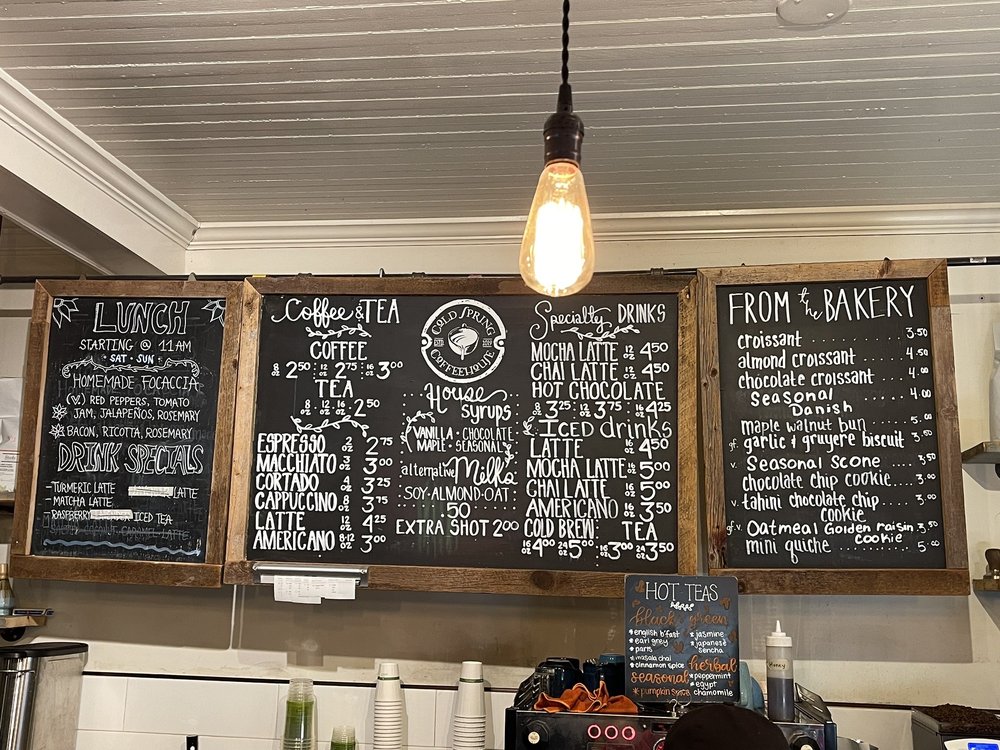 LUNCH
STARTING @ 11 AM
SAT · SUN
HOMEMADE FOCACCIA
(V.) RED PEPPERS, TOMATO
JAM, JALAPEÑOS, ROSEMARY
BACON, RICOTTA, ROSEMARY
DRINK SPECIALS
-TURMERIC LATTE
LATTE
-MATCHA LATTE
-RASPBERRY ICED TEA
Coffee & TEA
COFFEE
8 oz 2.50 12 oz 2.75 16 oz 3.00
TEA
8 oz 12 oz 16 oz 2.50
ESPRESSO 2 oz 2.75
MACCHIATO 3.00
CORTADO 4 oz 3.25
CAPPUCCINO 8 oz 3.75
LATTE 12 oz 4.25
AMERICANO 8-12 oz 3.00
COLD SPRING
COFFEEHOUSE
House
syrups
VANILLA · CHOCOLATE
MAPLE · SEASONAL
alternative Milks
SOY · ALMOND · OAT
.50
EXTRA SHOT 2.00
Specialty DRINKS
MOCHA LATTE 12 oz 4.50
CHAI LATTE 12 oz 4.50
HOT CHOCOLATE
8 oz 3.25 12 oz 3.75 16 oz 4.25
ICED drinks
LATTE 16 oz 4.50
MOCHA LATTE 16 oz 5.00
CHAI LATTE 16 oz 5.00
AMERICANO 16 oz 3.50
COLD BREW: TEA
16 oz 4.00 24 oz 5.00 16 oz 3.00 24 oz 3.50
FROM the BAKERY
croissant 3.50
almond croissant 4.50
chocolate croissant 4.00
Seasonal
Danish 4.00
maple walnut bun 5.00
gf. garlic & gruyere biscuit 3.50
v. Seasonal Scone 3.50
chocolate chip cookie 3.00
v. tahini chocolate chip
cookie 3.00
gf.v. Oatmeal Golden raisin 3.50
cookie
mini quiche 5.00
HOT TEAS
black green
* english b'fast * jasmine
* earl grey * japanese
* paris sencha
* masala chai
* cinnamon spice herbal
seasonal * peppermint
* egypt
* pumpkin spice chamomile